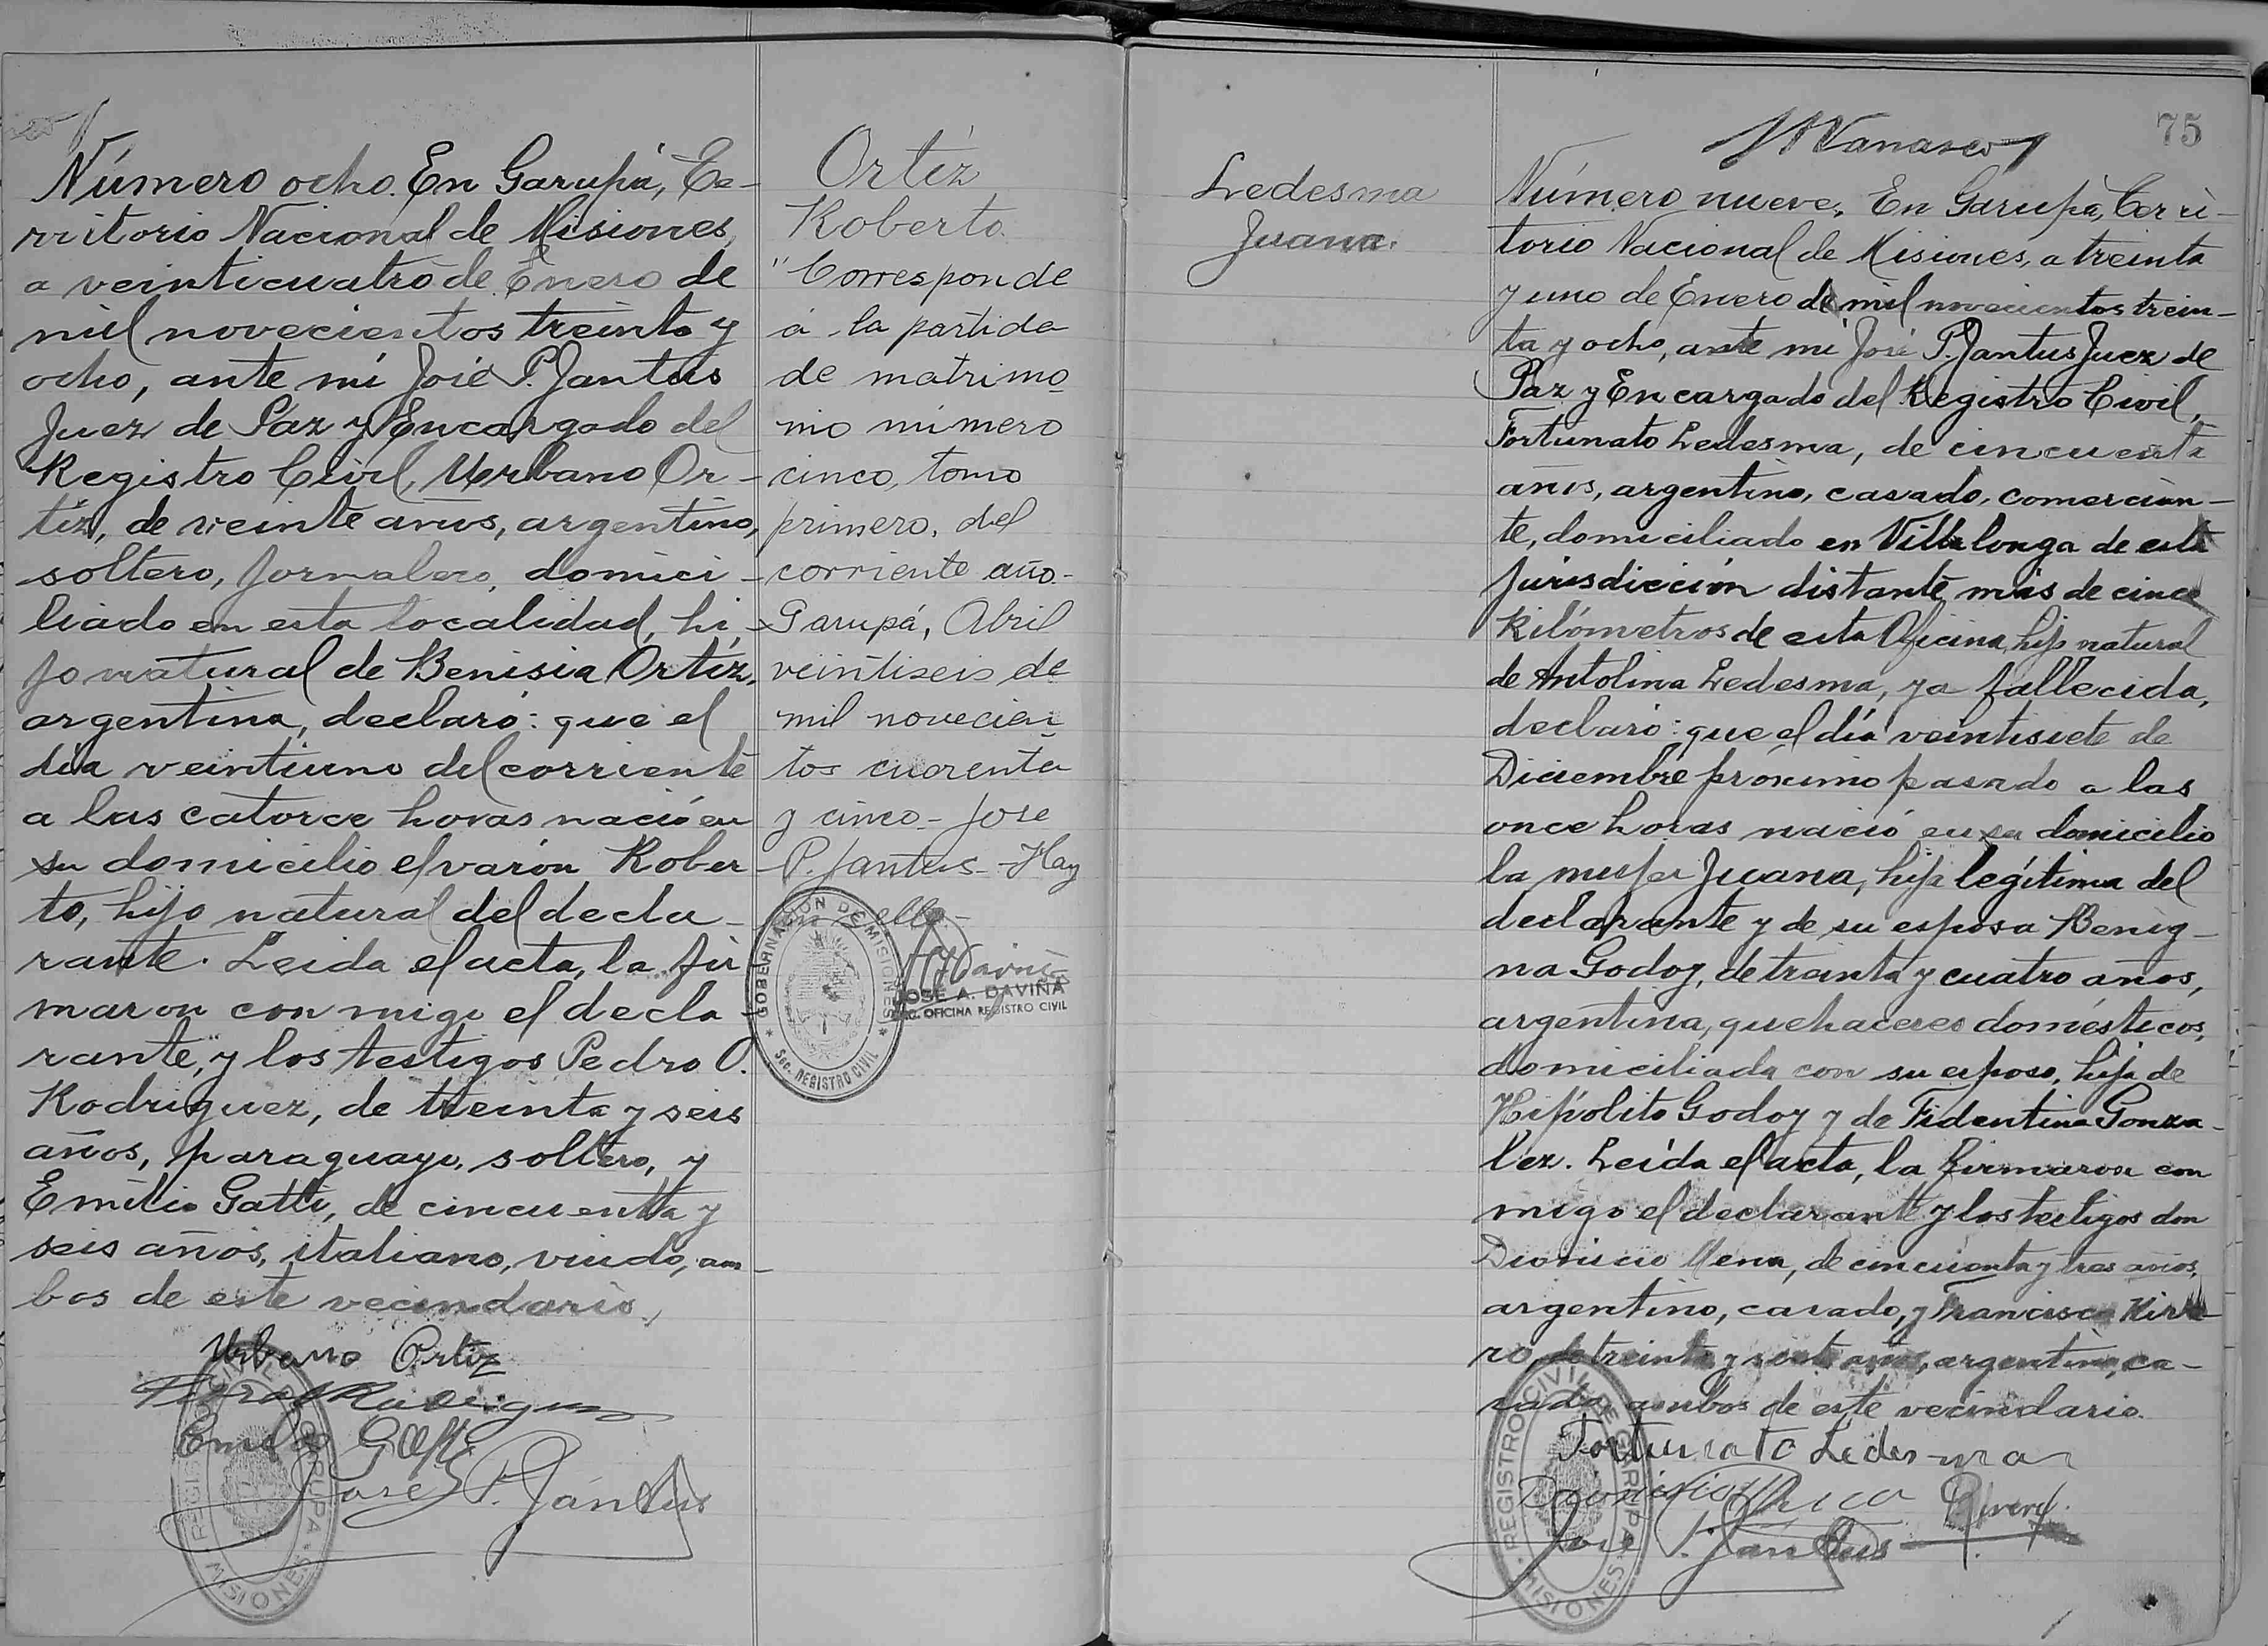 Número ocho. En Garupá, Te-
rritorio Nacional de Misiones,
a veinticuatro de Enero de
mil novecientos treinta y
ocho, ante mí José P. Jantus
Juez de Paz y Encargado del
Registro Civil, Urbano Or-
tíz, de veinte años, argentino,
soltero, jornalero, domici-
liado en esta localidad, hi-
jo natural de Benisia Ortíz,
argentina, declaró: que el
día veintiuno del corriente
a las catorce horas nació en
su domicilio el varón Rober-
to, hijo natural del decla-
rante. Leida el acta, la fir-
maron con migo el decla-
rante, y los testigos Pedro O.
Rodriguez, de treinta y seis
años, paraguayo, soltero, y
Emilio Gatti, de cincuenta y
seis años, italiano, viudo, am-
bos de este vecindario.
Urbano Ortiz
Emilio Gatti
José P. Jantus
REGISTRO CIVIL DE GARUPA
MISIONES
Ortíz
Roberto.
"Corresponde
á la partida
de matrimo
nio número
cinco, tomo
primero, del
corriente año.-
Garupá, Abril
veintiseis de
mil novecien
tos cuarenta
y cinco - Jose
P. Jantus - Hay
un sello -
GOBERNACION DE MISIONES
Sec. REGISTRO CIVIL
JOSE A. DAVIÑA
OFICINA REGISTRO CIVIL
Ledesma
Juana.
75
Número nueve. En Garupá, Terri-
torio Nacional de Misiones, a treinta
y uno de Enero de mil novecientos trein-
ta y ocho, ante mí José P. Jantus Juez de
Paz y Encargado del Registro Civil,
Fortunato Ledesma, de cincuenta
años, argentino, casado, comercian-
te, domiciliado en Villalonga de esta
jurisdicción distante más de cinco
kilómetros de esta Oficina, hijo natural
de Antolina Ledesma, ya fallecida,
declaró: que el día veintisiete de
Diciembre próximo pasado a las
once horas nació en su domicilio
la mujer Juana, hija legítima del
declarante y de su esposa Benig-
na Godoy, de treinta y cuatro años,
argentina, quehaceres domésticos,
domiciliada con su esposo, hija de
Hipólito Godoy y de Fidentina Gonza-
lez. Leída el acta, la firmaron con
migo el declarante y los testigos don
Dionicio Mena, de cincuenta y tres años,
argentino, casado, y Francisco
ro, de treinta y siete años, argentino, ca-
sado, ambos de este vecindario.
Fortunato Ledesma
José P. Jantus
REGISTRO CIVIL DE GARUPA
MISIONES